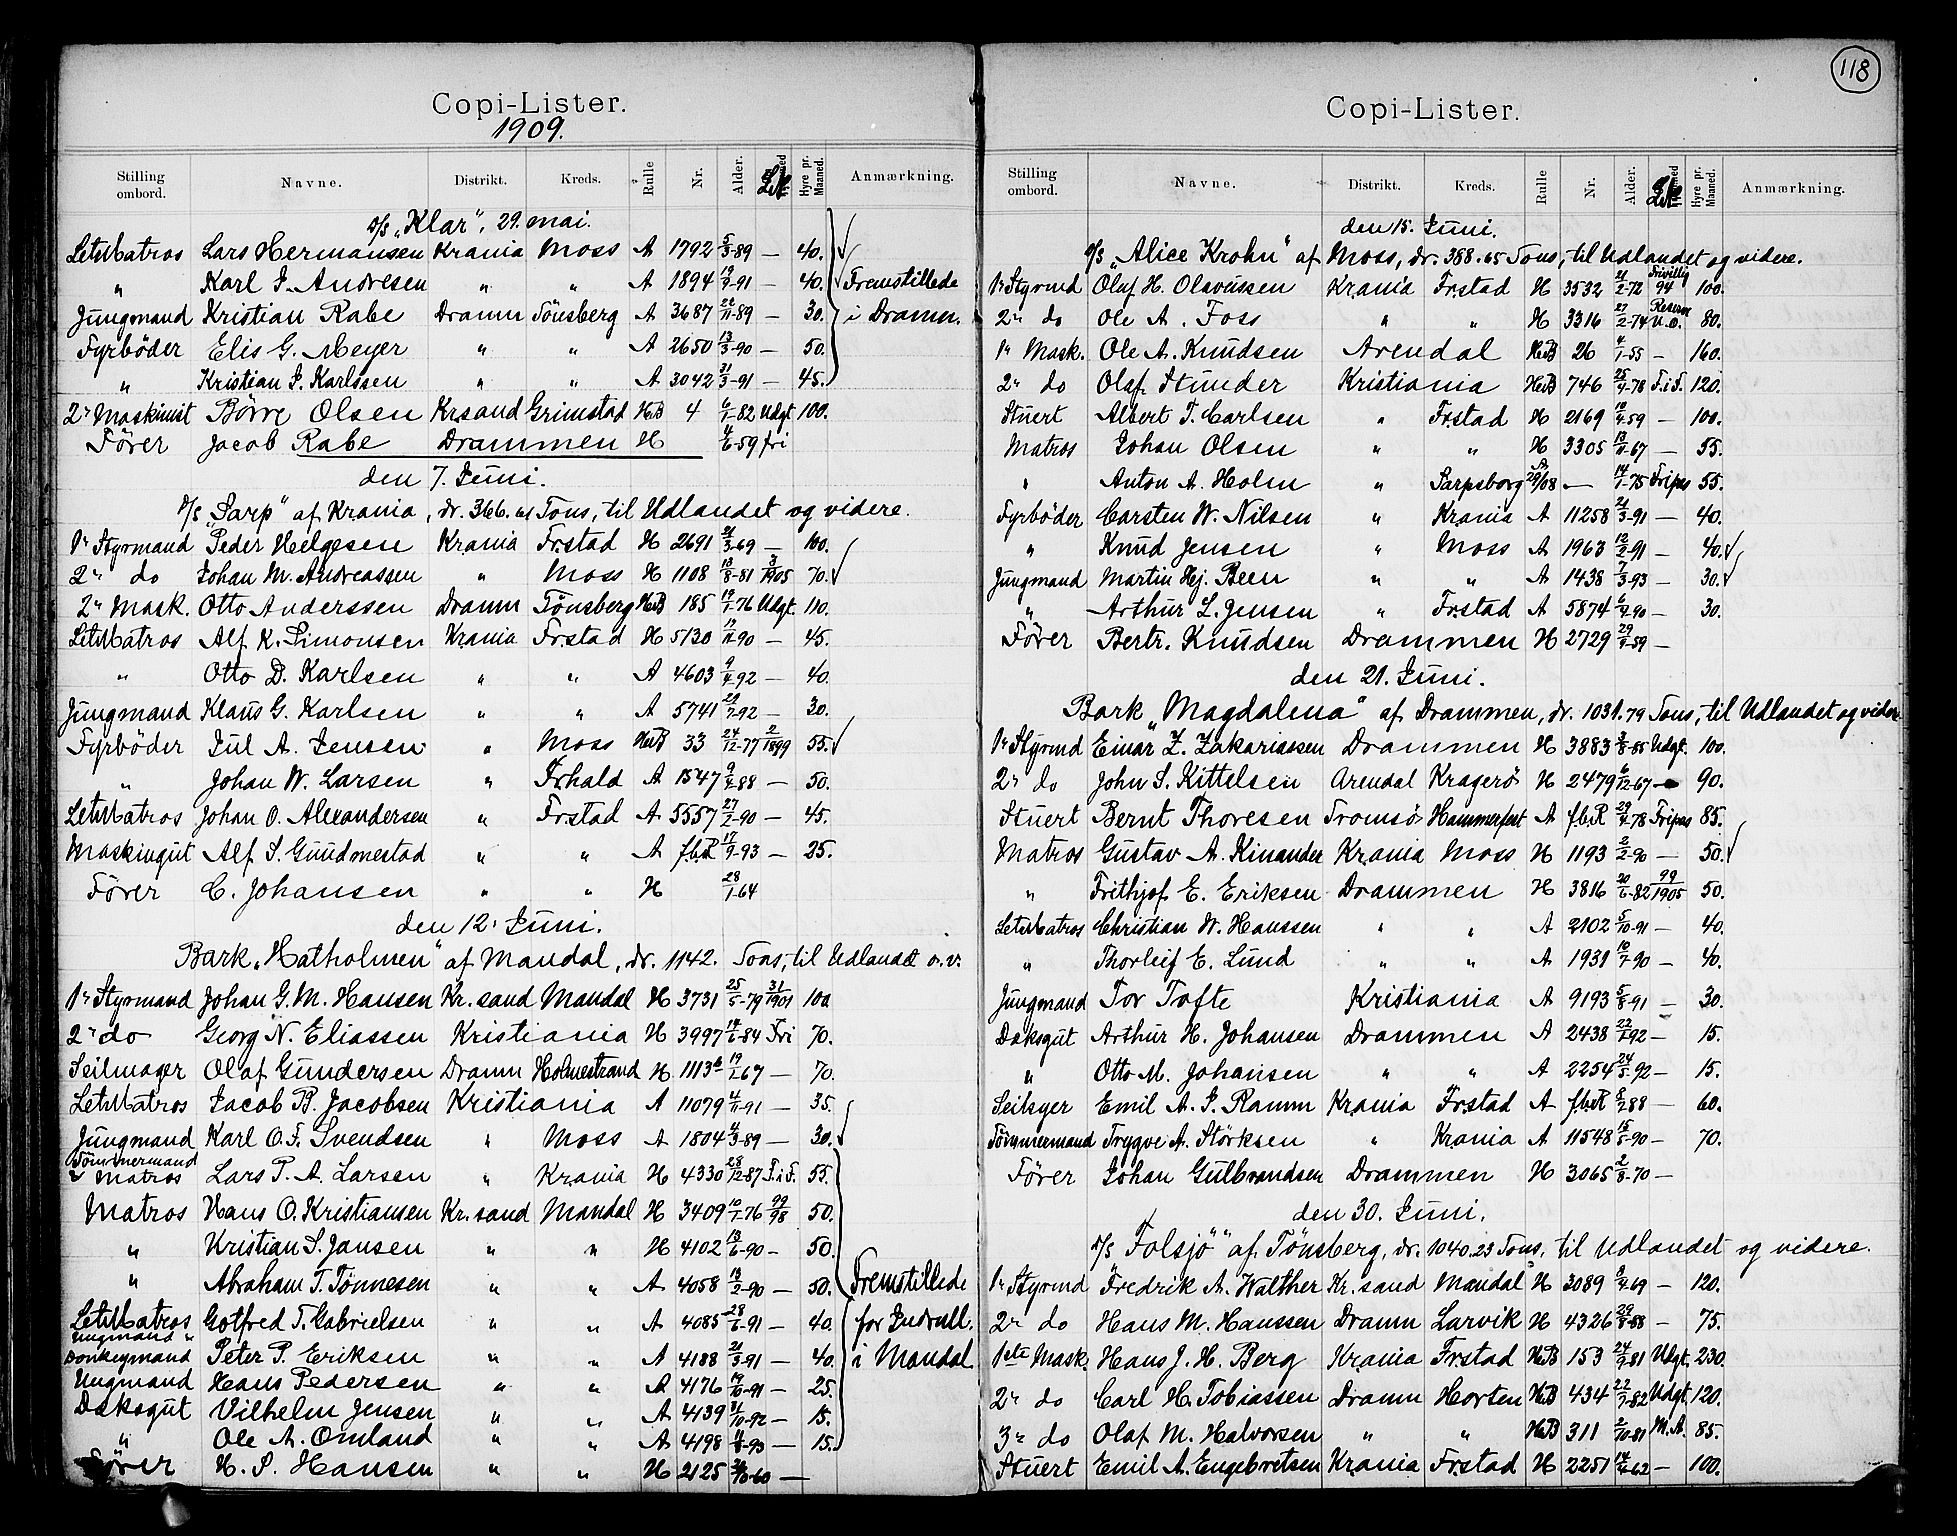 Copi-Lister.
1909.
Stilling ombord. Navne. Distrikt. Kreds. Rulle Nr. Alder. Hyre pr. Maaned. Anmærkning.
s/s „Klar", 29. mai.
LetMatros Lars Hermansen Krania Moss A 1792 5/3-89 — 40.
„ Karl J. Andresen „ „ A 1894 19/9-91 — 40. Fremstillede
Jungmand Kristian Rabe Dramm Tönsberg A 3687 22/11-89 — 30. i Dramn.
Fyrböder Elis G. Meyer „ „ A 2650 13/3-90 — 50.
„ Kristian J. Karlssen „ „ A 3042 31/3-91 — 45.
2n Maskinist Börre Olsen Krsand Grimstad HB 4 6/1-82 Udgt. 100.
Förer Jacob Rabe Drammen H 4/6-59 fri
den 7. Juni.
s/s „Sarp" af Krania, dr. 366.61 Tons, til Udlandet og videre.
1n Styrmand Peder Helgesen Krania Frstad H 2691 21/3-69 — 100.
2n do Johan M. Andreassen „ Moss H 1108 13/8-81 3/1905 70.
2n Mask. Otto Anderssen Dramm Tönsberg HB 185 19/1-76 Udgt. 110.
LetMatros Alf K. Simonsen Krania Frstad H 5130 17/11-90 — 45.
„ Otto D. Karlsen „ „ A 4603 9/4-92 — 40.
Jungmand Klaus G. Karlsen „ „ A 5741 29/7-92 — 30.
Fyrböder Jul A. Jensen „ Moss HB 33 24/12-77 2/1899 55.
„ Johan W. Larsen „ Frhald A 1547 9/4-88 — 50.
LetMatros Johan O. Alexandersen „ Frstad A 5557 27/2-90 — 45.
Maskingut Alf S. Guudmestad „ „ A f.b.R 17/9-93 — 25.
Förer C. Johansen „ „ H 28/1-64
den 12. Juni.
Bark „Hatholmen" af Mandal, dr. 1142. Tons, til Udlandet o.v.
1n Styrmand Johan G. M. Hansen Kr.sand Mandal H 3731 25/5-79 31/1901 100
2n do Georg N. Eliassen Kristiania H 3997 14/6-84 Fri 70.
Seilmager Olaf Gundersen Dramm Holmestrand H 1113b 19/1-67 — 70.
LetMatros Jacob B. Jacobsen Kristiania A 11079 4/11-91 — 35.
Jungmand Karl O. F. Svendsen „ Moss A 1804 4/3-89 — 30.
Tömmermand
& Matros Lars P. A. Larsen „ Krania H 4330 28/12-87 F.i F. 55.
Matros Hans O. Kristiansen Kr.sand Mandal H 3409 10/1-76 99/98 50.
„ Kristian S. Jansen „ „ H 4102 13/6-90 — 50.
„ Abraham T. Tönnesen „ „ A 4058 13/2-90 — 50. Fremstillede
LetMatros Gotfred T. Gabrielsen „ „ A 4085 28/6-91 — 40. for Indrull.
Jungmand „
Donkeymand Peter P. Eriksen „ „ A 4188 21/3-91 — 40. i Mandal
Ungmand Hans Pedersen „ „ A 4176 19/10-91 — 25.
Dæksgut Vilhelm Jensen „ „ A 4139 31/10-92 — 15.
„ Ole A. Omland „ „ A 4198 11/8-93 — 15.
Förer H. S. Hansen „ „ H 2125 /10-60 —
118
Copi-Lister.
Stilling ombord. Navne. Distrikt. Kreds. Rulle Nr. Alder. Hyre pr. Maaned. Anmærkning.
den 15. Juni.
s/s „Alice Krohn" af Moss, dr. 388.65 Tons, til Udlandet og videre.
1n Styrmd Olaf H. Olavussen Krania Frstad H 3532 21/2-72 Frivillig 94 100.
2n do Ole A. Foss „ „ H 3316 27/2-74 Reserve U.O. 80.
1n Mask. Ole A. Knudsen Arendal HB 26 4/1-55 — 160.
2n do Olaf Stunder Kristiania HB 746 25/9-78 F.i F. 120.
Stuert Albert T. Carlsen „ Frstad H 2169 10/9-59 — 100.
Matros Johan Olsen „ „ H 3305 13/11-67 — 55.
„ Anton A. Holm „ Sarpsborg 29/08 — 14/1-75 Fripas 55.
Fyrböder Carsten W. Nilsen „ Krania A 11258 21/3-91 — 40.
„ Knud Jensen „ Moss A 1963 12/2-91 — 40.
Jungmand Martin Hj. Been „ „ A 1438 7/3-93 — 30.
„ Arthur L. Jensen „ Frstad A 5874 6/9-90 — 30.
Förer Bertr. Knudsen Drammen H 2729 29/9-59 —
den 21. Juni.
Bark „Magdalena" af Drammen, dr. 1031.79 Tons, til Udlandet og videre
1n Styrmd Einar Z. Zakariassen Drammen H 3883 3/8-85 Udgt. 100.
2n do John S. Kittelsen Arendal Kragerö H 2479 6/12-67 — 90.
Stuert Bernt Thoresen Tromsö Hammerfest A f.b.R 29/9-78 Fripas 85.
Matros Gustav A. Kinander Krania Moss H 1193 2/2-90 — 50.
„ Frithjof E. Eriksen Drammen H 3816 20/6-82 99/1905 50.
LetMatros Christian W. Hanssen „ „ A 2102 5/10-91 — 40.
„ Thorleif E. Lund „ „ A 1931 10/7-90 — 40.
Jungmand Tor Tofte Kristiania A 9193 5/8-91 — 30.
Dæksgut Arthur H. Johansen Drammen A 2438 22/7-92 — 15.
„ Otto M. Johansen „ „ A 2254 24/5-92 — 15.
Seilsyer Emil A. J. Ramm Krania Frstad A f.b.R 8/2-88 — 60.
Tömmermand Trygve A. Störksen „ Krania A 11548 15/5-90 — 70.
Förer Johan Gulbrandsen Drammen H 3065 2/8-70 —
den 30. Juni.
s/s „Folsjö" af Tönsberg, dr. 1040.23 Tons, til Udlandet og videre.
1n Styrmd Fredrik A. Walther Kr.sand Mandal H 3089 8/9-69 — 120.
2n do Hans M. Hanssen Dramm Larvik H 4326 29/8-88 — 75.
1ste Mask. Hans J. H. Berg Krania Frstad HB 153 24/9-81 Udgt. 230.
2n do Carl H. Tobiassen Dramm Horten HB 434 22/7-82 Udgt. 120.
3n do Olaf M. Halvorsen „ „ HB 311 2/10-81 M.A. 85.
Stuert Emil A. Engebretsen Krania Frstad H 2251 14/4-62 — 100.